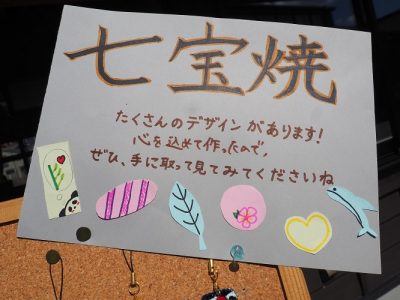 七宝焼
たくさんのデザインがあります!
心を込めて作ったので、
ぜひ、手に取って見てみてくださいね